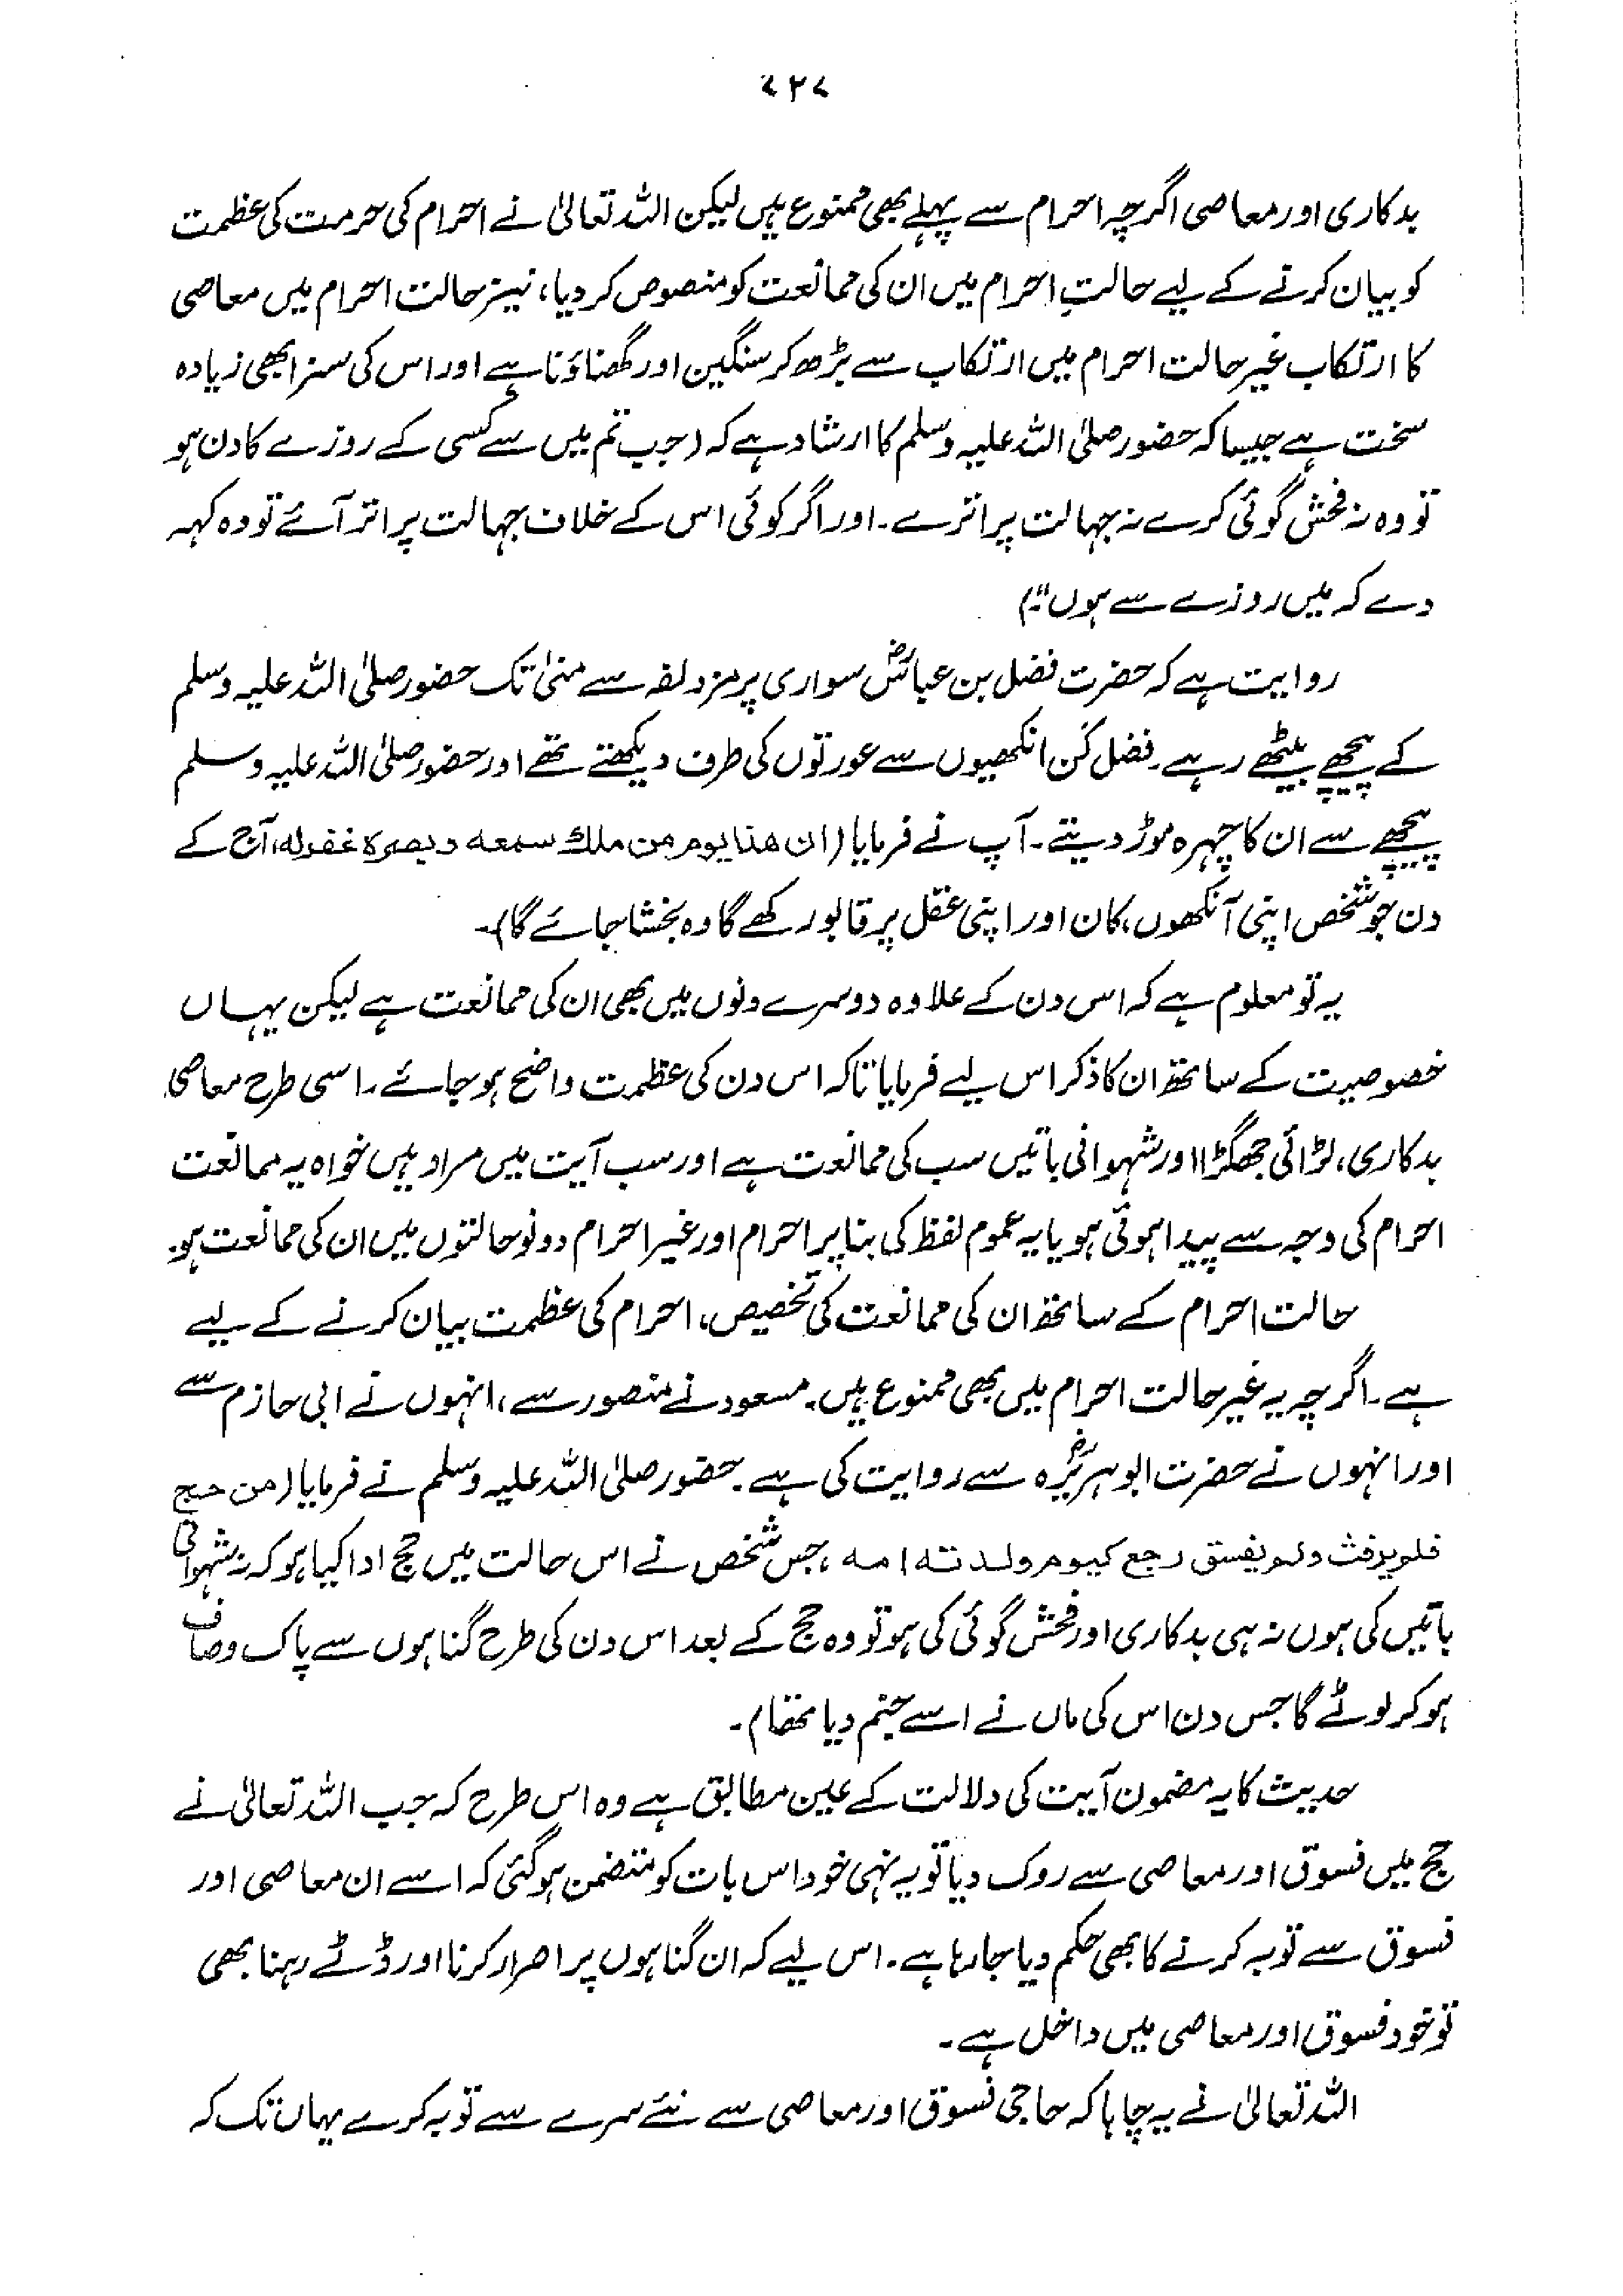 ۷۲۷
بدکاری اور معاصی اگرچہ احرام سے پہلے بھی ممنوع ہیں لیکن اللہ تعالیٰ نے احرام کی حرمت کی عظمت
کو بیان کرنے کے لیے حالتِ احرام میں ان کی ممانعت کو منصوص کر دیا، نیز حالت احرام میں معاصی
کا ارتکاب غیر حالت احرام میں ارتکاب سے بڑھ کر سنگین اور گھناؤنا ہے اور اس کی سزا بھی زیادہ
سخت ہے جیسا کہ حضور صلی اللہ علیہ وسلم کا ارشاد ہے کہ (جب تم میں سے کسی کے روزے کا دن ہو
تو وہ نہ فحش گوئی کرے نہ جہالت پر اترے۔ اور اگر کوئی اس کے خلاف جہالت پر اتر آئے تو وہ کہہ
دے کہ میں روزے سے ہوں")
روایت ہے کہ حضرت فضل بن عباسؓ سواری پر مزدلفہ سے منیٰ تک حضور صلی اللہ علیہ وسلم
کے پیچھے بیٹھے رہے۔ فضل کن انکھیوں سے عورتوں کی طرف دیکھتے تھے اور حضور صلی اللہ علیہ وسلم
پیچھے سے ان کا چہرہ موڑ دیتے۔ آپ نے فرمایا (ان ھذا یوم من ملك سمعه وبصرہ غفرلہ، آج کے
دن جو شخص اپنی آنکھوں، کان اور اپنی عقل پر قابو رکھے گا وہ بخشا جائے گا)۔
یہ تو معلوم ہے کہ اس دن کے علاوہ دوسرے دنوں میں بھی ان کی ممانعت ہے لیکن یہاں
خصوصیت کے ساتھ ان کا ذکر اس لیے فرمایا تاکہ اس دن کی عظمت واضح ہو جائے۔ اسی طرح معاصی،
بدکاری، لڑائی جھگڑا اور شہوانی باتیں سب کی ممانعت ہے اور سب آیت میں مراد ہیں خواہ یہ ممانعت
احرام کی وجہ سے پیدا ہوئی ہو یا یہ عموم لفظ کی بنا پر احرام اور غیر احرام دونو حالتوں میں ان کی ممانعت ہو۔
حالت احرام کے ساتھ ان کی ممانعت کی تخصیص، احرام کی عظمت بیان کرنے کے لیے
ہے۔ اگرچہ یہ غیر حالت احرام میں بھی ممنوع ہیں۔ مسعود نے منصور سے، انہوں نے ابی حازم سے
اور انہوں نے حضرت ابوہریرہؓ سے روایت کی ہے۔ حضور صلی اللہ علیہ وسلم نے فرمایا (من حج
فلم یرفث ولم یفسق رجع کیوم ولدتہ امه، جس شخص نے اس حالت میں حج ادا کیا ہو کہ نہ شہوانی
باتیں کی ہوں نہ ہی بدکاری اور فحش گوئی کی ہو تو وہ حج کے بعد اس دن کی طرح گناہوں سے پاک وصاف
ہو کر لوٹے گا جس دن اس کی ماں نے اسے جنم دیا تھا)۔
حدیث کا یہ مضمون آیت کی دلالت کے عین مطابق ہے وہ اس طرح کہ جب اللہ تعالیٰ نے
حج میں فسوق اور معاصی سے روک دیا تو یہ نہی خود اس بات کو متضمن ہو گئی کہ اسے ان معاصی اور
فسوق سے توبہ کرنے کا بھی حکم دیا جا رہا ہے۔ اس لیے کہ ان گناہوں پر اصرار کرنا اور ڈٹے رہنا بھی
تو خود فسوق اور معاصی میں داخل ہے۔
اللہ تعالیٰ نے یہ چاہا کہ حاجی فسوق اور معاصی سے نئے سرے سے توبہ کرے یہاں تک کہ